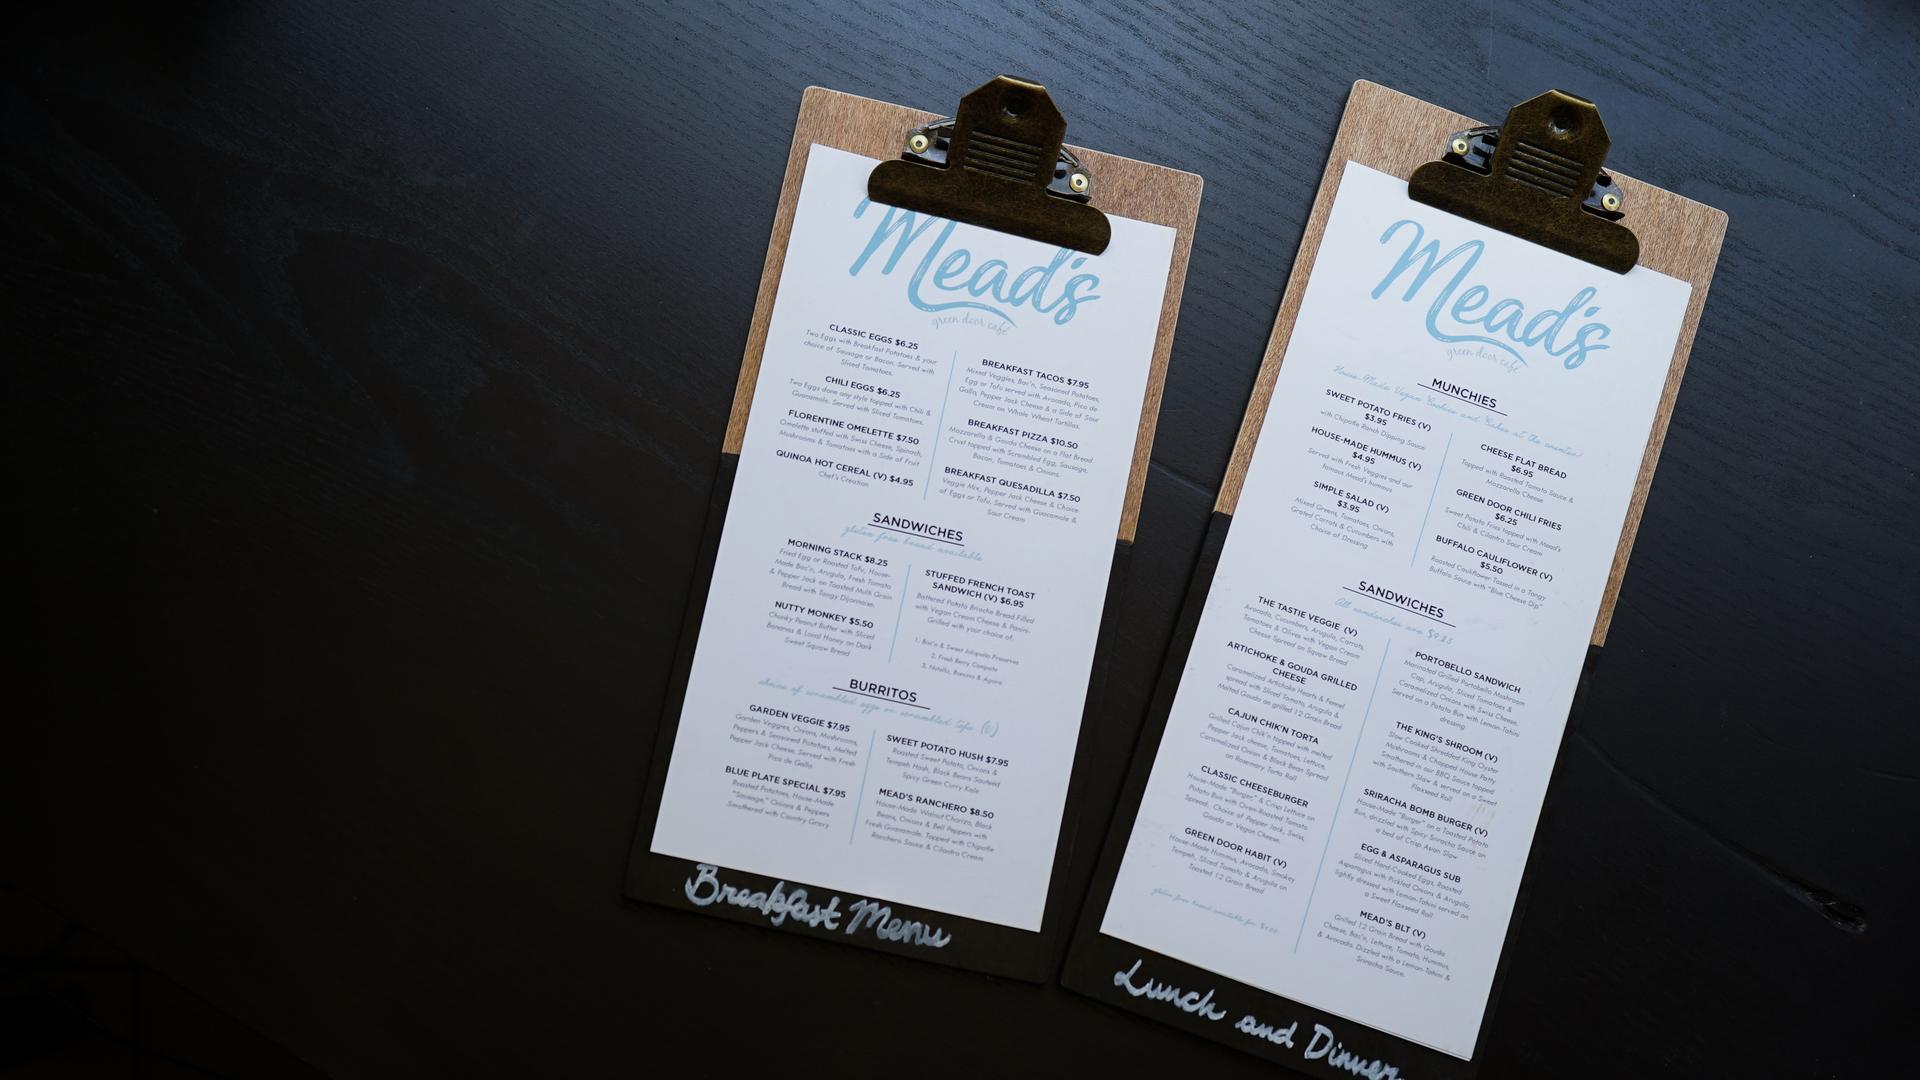 Mead's
green door café
CLASSIC EGGS $6.25
Two Eggs with Breakfast Potatoes & your
choice of Sausage or Bacon. Served with
Sliced Tomatoes.
CHILI EGGS $6.25
Two Eggs done any style topped with Chili &
Guacamole. Served with Sliced Tomatoes.
FLORENTINE OMELETTE $7.50
Omelette stuffed with Swiss Cheese, Spinach,
Mushrooms & Tomatoes with a Side of Fruit
QUINOA HOT CEREAL (V) $4.95
Chef's Creation
BREAKFAST TACOS $7.95
Mixed Veggies, Bac'n, Seasoned Potatoes,
Egg or Tofu served with Avocado, Pico de
Gallo, Pepper Jack Cheese & a Side of Sour
Cream on Whole Wheat Tortillas.
BREAKFAST PIZZA $10.50
Mozzarella & Gouda Cheese on a Flat Bread
Crust topped with Scrambled Egg, Sausage,
Bacon, Tomatoes & Onions.
BREAKFAST QUESADILLA $7.50
Veggie Mix, Pepper Jack Cheese & Choice
of Eggs or Tofu. Served with Guacamole &
Sour Cream
SANDWICHES
gluten free bread available
MORNING STACK $8.25
Fried Egg or Roasted Tofu, House-
Made Bac'n, Arugula, Fresh Tomato
& Pepper Jack on Toasted Multi Grain
Bread with Tangy Dijonnaise.
NUTTY MONKEY $5.50
Chunky Peanut Butter with Sliced
Bananas & Local Honey on Dark
Sweet Squaw Bread
STUFFED FRENCH TOAST
SANDWICH (V) $6.95
Battered Potato Brioche Bread Filled
with Vegan Cream Cheese & Panini-
Grilled with your choice of:
1. Bac'n & Sweet Jalapeño Preserves
2. Fresh Berry Compote
3. Nutella, Banana & Agave
BURRITOS
choice of scrambled eggs or scrambled tofu (V)
GARDEN VEGGIE $7.95
Garden Veggies, Onions, Mushrooms,
Peppers & Seasoned Potatoes, Melted
Pepper Jack Cheese. Served with Fresh
Pico de Gallo
BLUE PLATE SPECIAL $7.95
Roasted Potatoes, House-Made
"Sausage," Onions & Peppers
Smothered with Country Gravy
SWEET POTATO HUSH $7.95
Roasted Sweet Potato, Onions &
Tempeh Hash, Black Beans Sautéed
Spicy Green Curry Kale
MEAD'S RANCHERO $8.50
House-Made Walnut Chorizo, Black
Beans, Onions & Bell Peppers with
Fresh Guacamole. Topped with Chipotle
Ranchero Sauce & Cilantro Cream
Breakfast Menu
Mead's
green door café
MUNCHIES
House-Made Vegan Cookies and Cakes at the counter!
SWEET POTATO FRIES (V)
$3.95
with Chipotle Ranch Dipping Sauce
HOUSE-MADE HUMMUS (V)
$4.95
Served with Fresh Veggies and our
famous Mead's hummus
SIMPLE SALAD (V)
$3.95
Mixed Greens, Tomatoes, Onions,
Grated Carrots & Cucumbers with
Choice of Dressing
CHEESE FLAT BREAD
$6.95
Topped with Roasted Tomato Sauce &
Mozzarella Cheese
GREEN DOOR CHILI FRIES
$6.25
Sweet Potato Fries topped with Mead's
Chili & Cilantro Sour Cream
BUFFALO CAULIFLOWER (V)
$5.50
Roasted Cauliflower Tossed in a Tangy
Buffalo Sauce with "Blue Cheese Dip"
SANDWICHES
All sandwiches are $9.25
THE TASTIE VEGGIE (V)
Avocado, Cucumbers, Arugula, Carrots,
Tomatoes & Olives with Vegan Cream
Cheese Spread on Squaw Bread
ARTICHOKE & GOUDA GRILLED
CHEESE
Caramelized Artichoke Hearts & Fennel
spread with Sliced Tomato, Arugula &
Melted Gouda on grilled 12 Grain Bread
CAJUN CHIK'N TORTA
Grilled Cajun Chik'n topped with melted
Pepper Jack cheese, Tomatoes, Lettuce,
Caramelized Onion & Black Bean Spread
on Rosemary Torta Roll
CLASSIC CHEESEBURGER
House-Made "Burger" & Crisp Lettuce on
Potato Bun with Oven-Roasted Tomato
Spread. Choice of Pepper Jack, Swiss,
Gouda or Vegan Cheese.
GREEN DOOR HABIT (V)
House-Made Hummus, Avocado, Smokey
Tempeh, Sliced Tomato & Arugula on
Toasted 12 Grain Bread
gluten free bread available for $1.00
PORTOBELLO SANDWICH
Marinated Grilled Portobello Mushroom
Cap, Arugula, Sliced Tomatoes &
Caramelized Onions with Swiss Cheese,
Served on a Potato Bun with Lemon-Tahini
dressing
THE KING'S SHROOM (V)
Slow Cooked Shredded King Oyster
Mushrooms & Chopped House Patty
Smothered in our BBQ Sauce topped
with Southern Slaw & served on a Sweet
Flaxseed Roll
SRIRACHA BOMB BURGER (V)
House-Made "Burger" on a Toasted Potato
Bun, drizzled with Spicy Sriracha Sauce on
a bed of Crisp Asian Slaw
EGG & ASPARAGUS SUB
Sliced Hard-Cooked Eggs, Roasted
Asparagus with Pickled Onions & Arugula,
lightly dressed with Lemon-Tahini served on
a Sweet Flaxseed Roll
MEAD'S BLT (V)
Grilled 12 Grain Bread with Gouda
Cheese, Bac'n, Lettuce, Tomato, Hummus,
& Avocado. Dizzled with a Lemon-Tahini &
Sriracha Sauce.
Lunch and Dinner